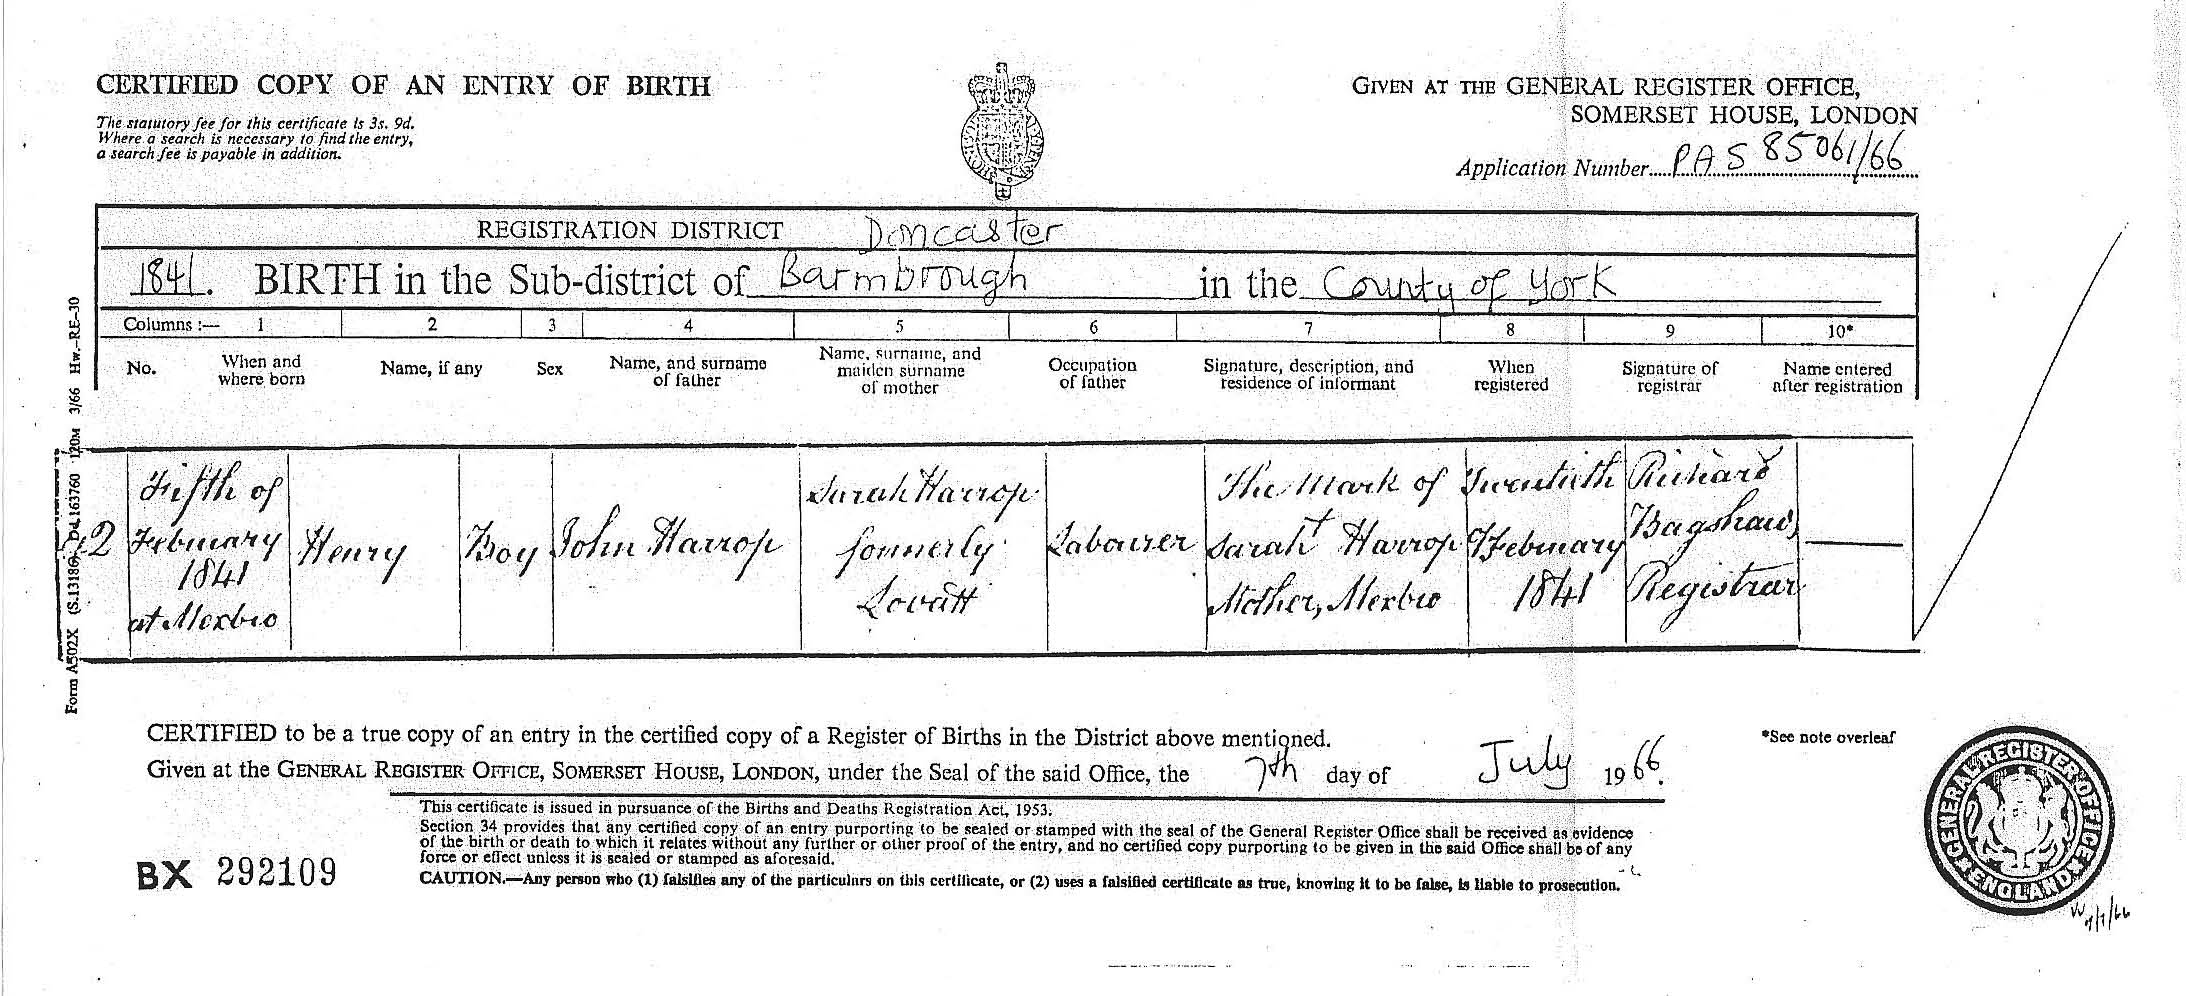 CERTIFIED COPY OF AN ENTRY OF BIRTH
The statutory fee for this certificate is 3s. 9d.
Where a search is necessary to find the entry,
a search fee is payable in addition.
GIVEN AT THE GENERAL REGISTER OFFICE,
SOMERSET HOUSE, LONDON
Application Number PAS 85061/66
REGISTRATION DISTRICT Doncaster
1841. BIRTH in the Sub-district of Barmbrough in the County of York
Columns :— 1 2 3 4 5 6 7 8 9 10*
No.
When and
where born
Name, if any
Sex
Name, and surname
of father
Name, surname, and
maiden surname
of mother
Occupation
of father
Signature, description, and
residence of informant
When
registered
Signature of
registrar
Name entered
after registration
Fifth of
February
1841
at Mexbro
Henry
Boy
John Harrop
Sarah Harrop
formerly
Lovatt
Labourer
The Mark of
Sarah + Harrop
Mother, Mexbro
Twentieth
February
1841
Richard
Bagshaw,
Registrar
Form A502X (S.13186) Dd.163760 120M 3/66 Hw.—RE—30
CERTIFIED to be a true copy of an entry in the certified copy of a Register of Births in the District above mentioned.
Given at the GENERAL REGISTER OFFICE, SOMERSET HOUSE, LONDON, under the Seal of the said Office, the 7th day of July 1966.
*See note overleaf
This certificate is issued in pursuance of the Births and Deaths Registration Act, 1953.
Section 34 provides that any certified copy of an entry purporting to be sealed or stamped with the seal of the General Register Office shall be received as evidence
of the birth or death to which it relates without any further or other proof of the entry, and no certified copy purporting to be given in the said Office shall be of any
force or effect unless it is sealed or stamped as aforesaid.
CAUTION.—Any person who (1) falsifies any of the particulars on this certificate, or (2) uses a falsified certificate as true, knowing it to be false, is liable to prosecution.
BX 292109
GENERAL REGISTER OFFICE
ENGLAND